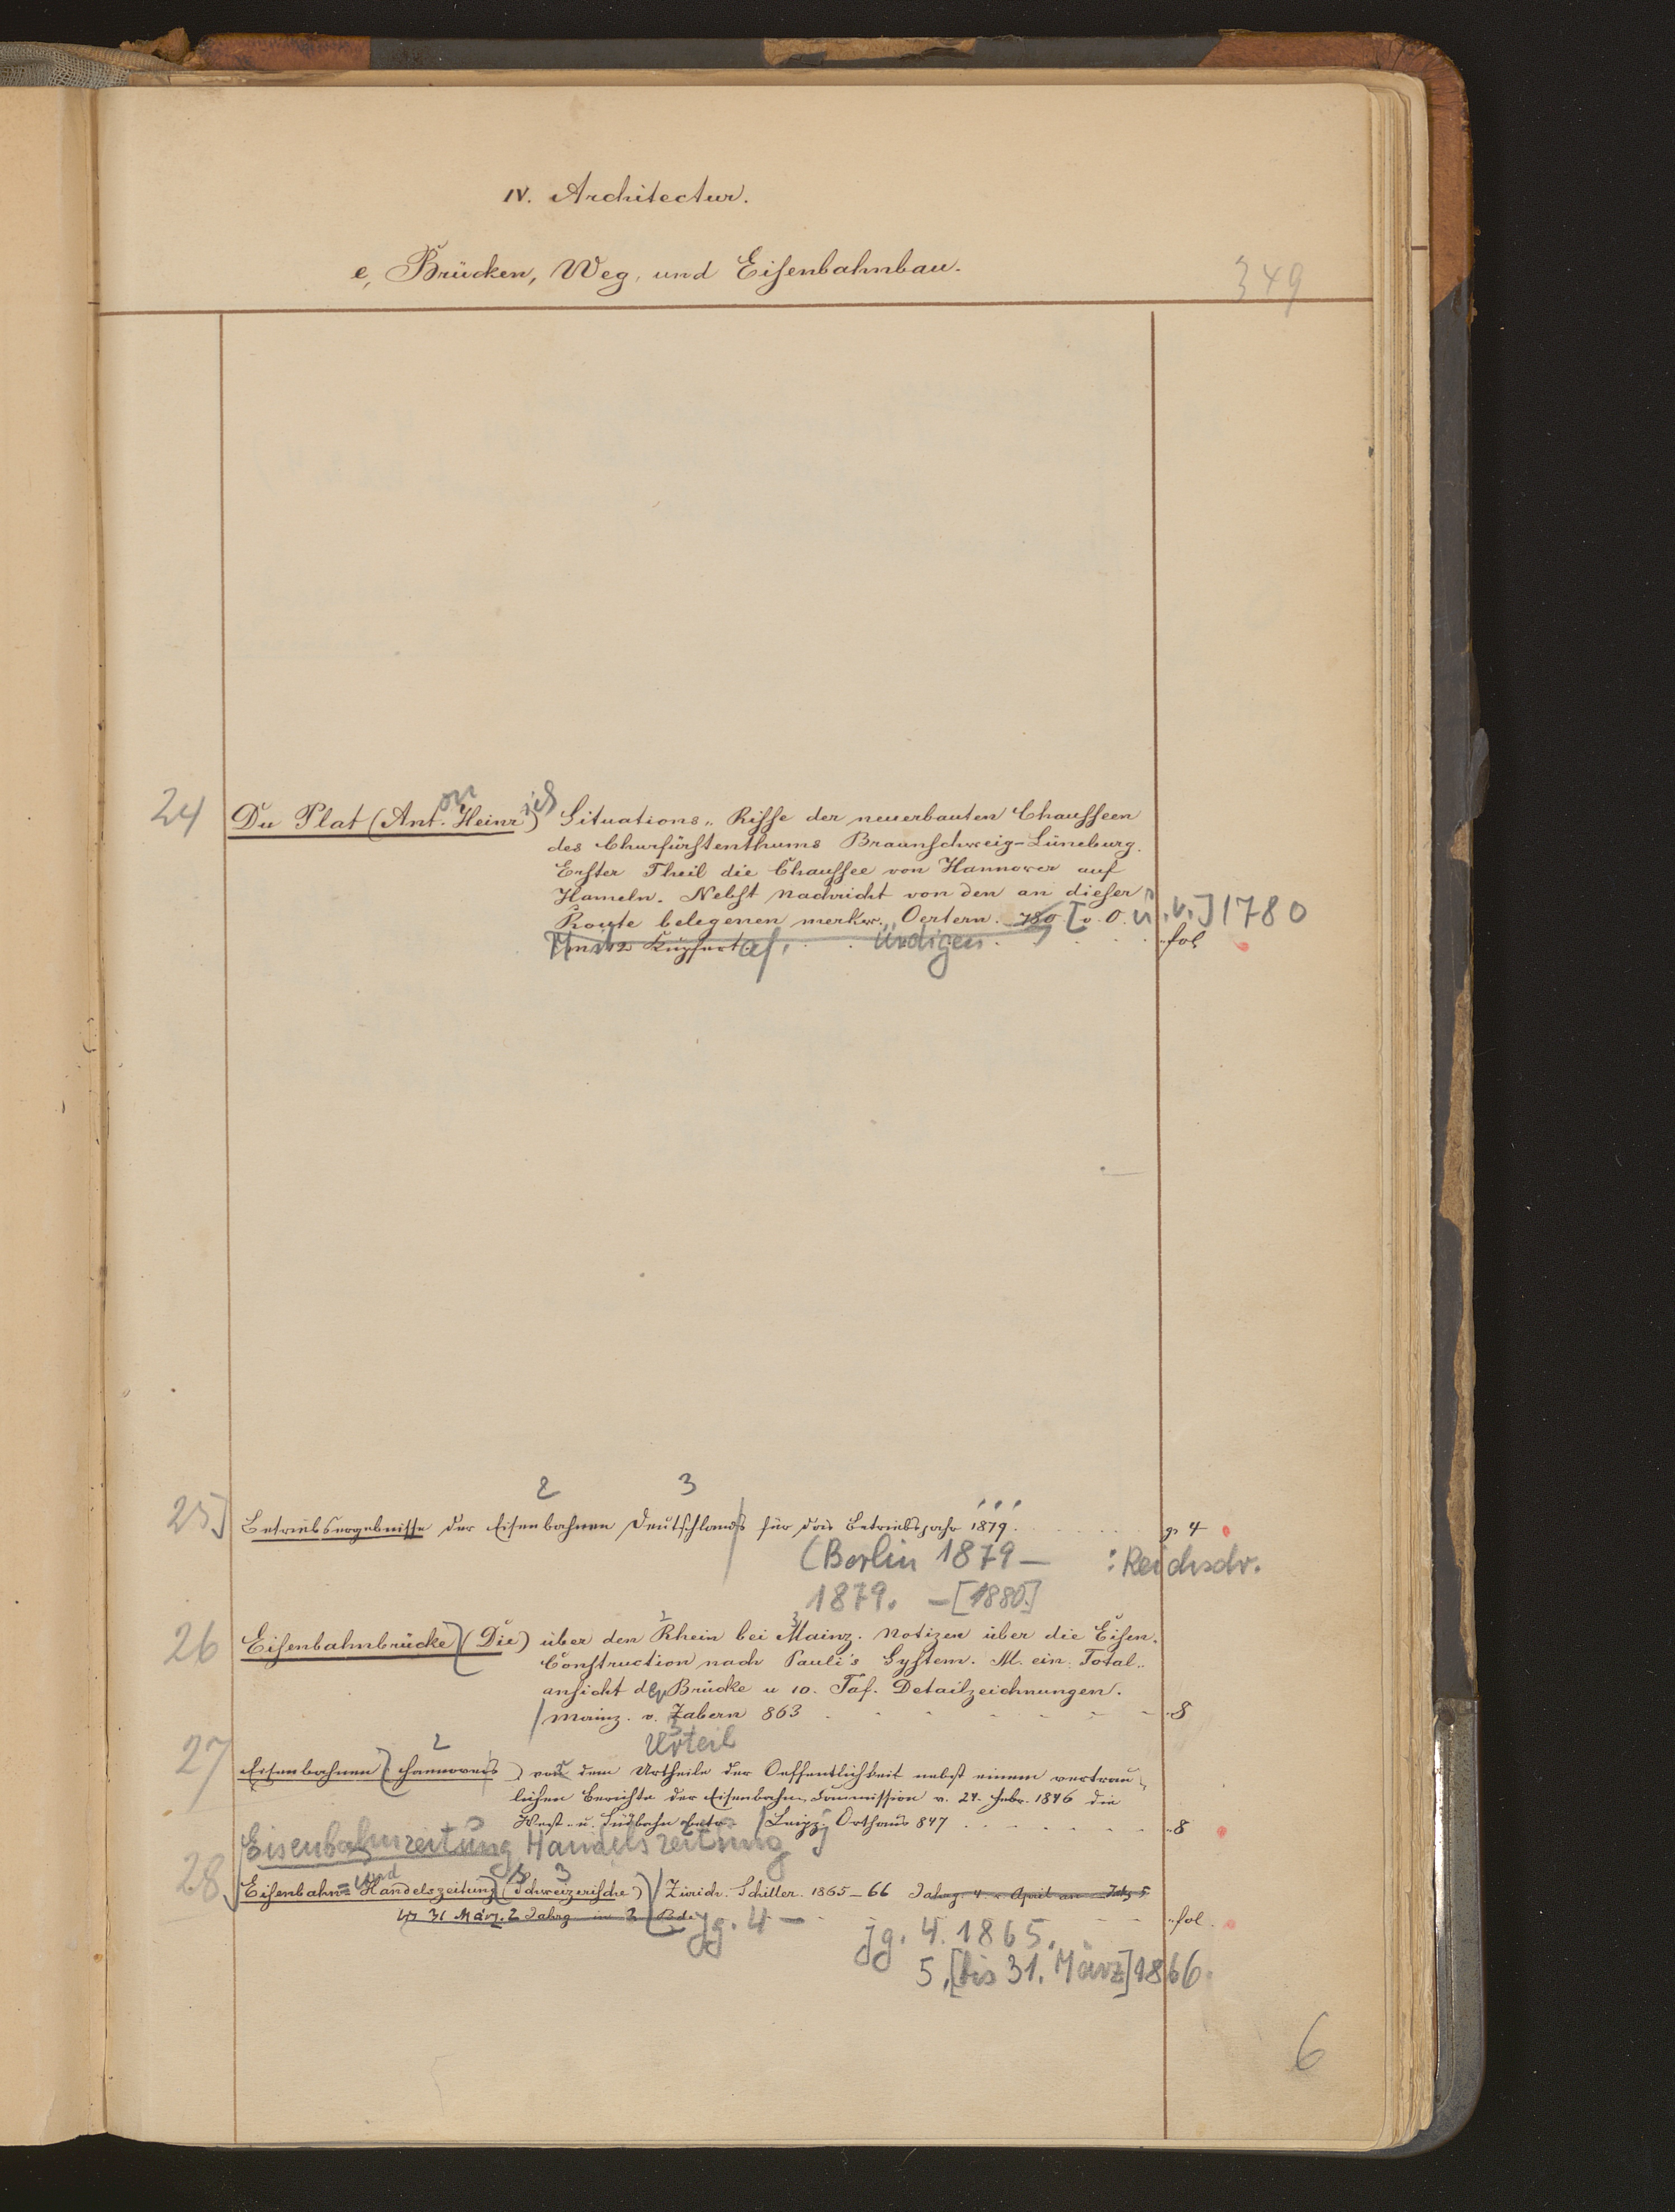 IV. Architectur.
e, Brücken, Weg, und Eisenbahnbau.
349
24 Du Plat (Ant. Heinr) Situations„ Risse der neuerbauten Chausseen
on ich
des Churfürstenthums Braunschweig-Lüneburg.
Erster Theil die Chaussee von Hannover auf
Hameln. Nebst Nachricht von den an dieser
Route belegenen merkw. Oertern. 780 [o. O. u. V.] 1780
Mit 2 Kupfertaf. ürdigen fol
2 3
25 Betriebsergebnisse der Eisenbahnen Deutschlands für das Betriebsjahr 1879. gr 4
(Berlin 1879 — : Reichsdr.
1879. — [1880.]
2 3
26 Eisenbahnbrücke (Die) über den Rhein bei Mainz. Notizen über die Eisen.
Construction nach Pauli's System. M. ein. Total„
ansicht der Brücke u 10. Taf. Detailzeichnungen.
Mainz. v. Zabern 863 „8
2 3 Urteil
27 Eisenbahnen (Hannovers) vor dem Urtheile der Oeffentlichkeit nebst einem vertrau„
lichen Berichte der Eisenbahn„Commission v. 24. Febr. 1846 die
West„ u. Südbahn betr. Leipz. Orthaus 847 „8
Eisenbahnzeitung Handelszeitung
und 3
28 Eisenbahn= Handelszeitung (Schweizerische) Zürich. Schiller. 1865–66 Jahrg. 4 v April an Jahrg 5
bis 31 März. 2 Jahrg in 2 Bde „fol.
Jg. 4 — jg. 4. 1865.
5, [bis 31. März] 1866.
6